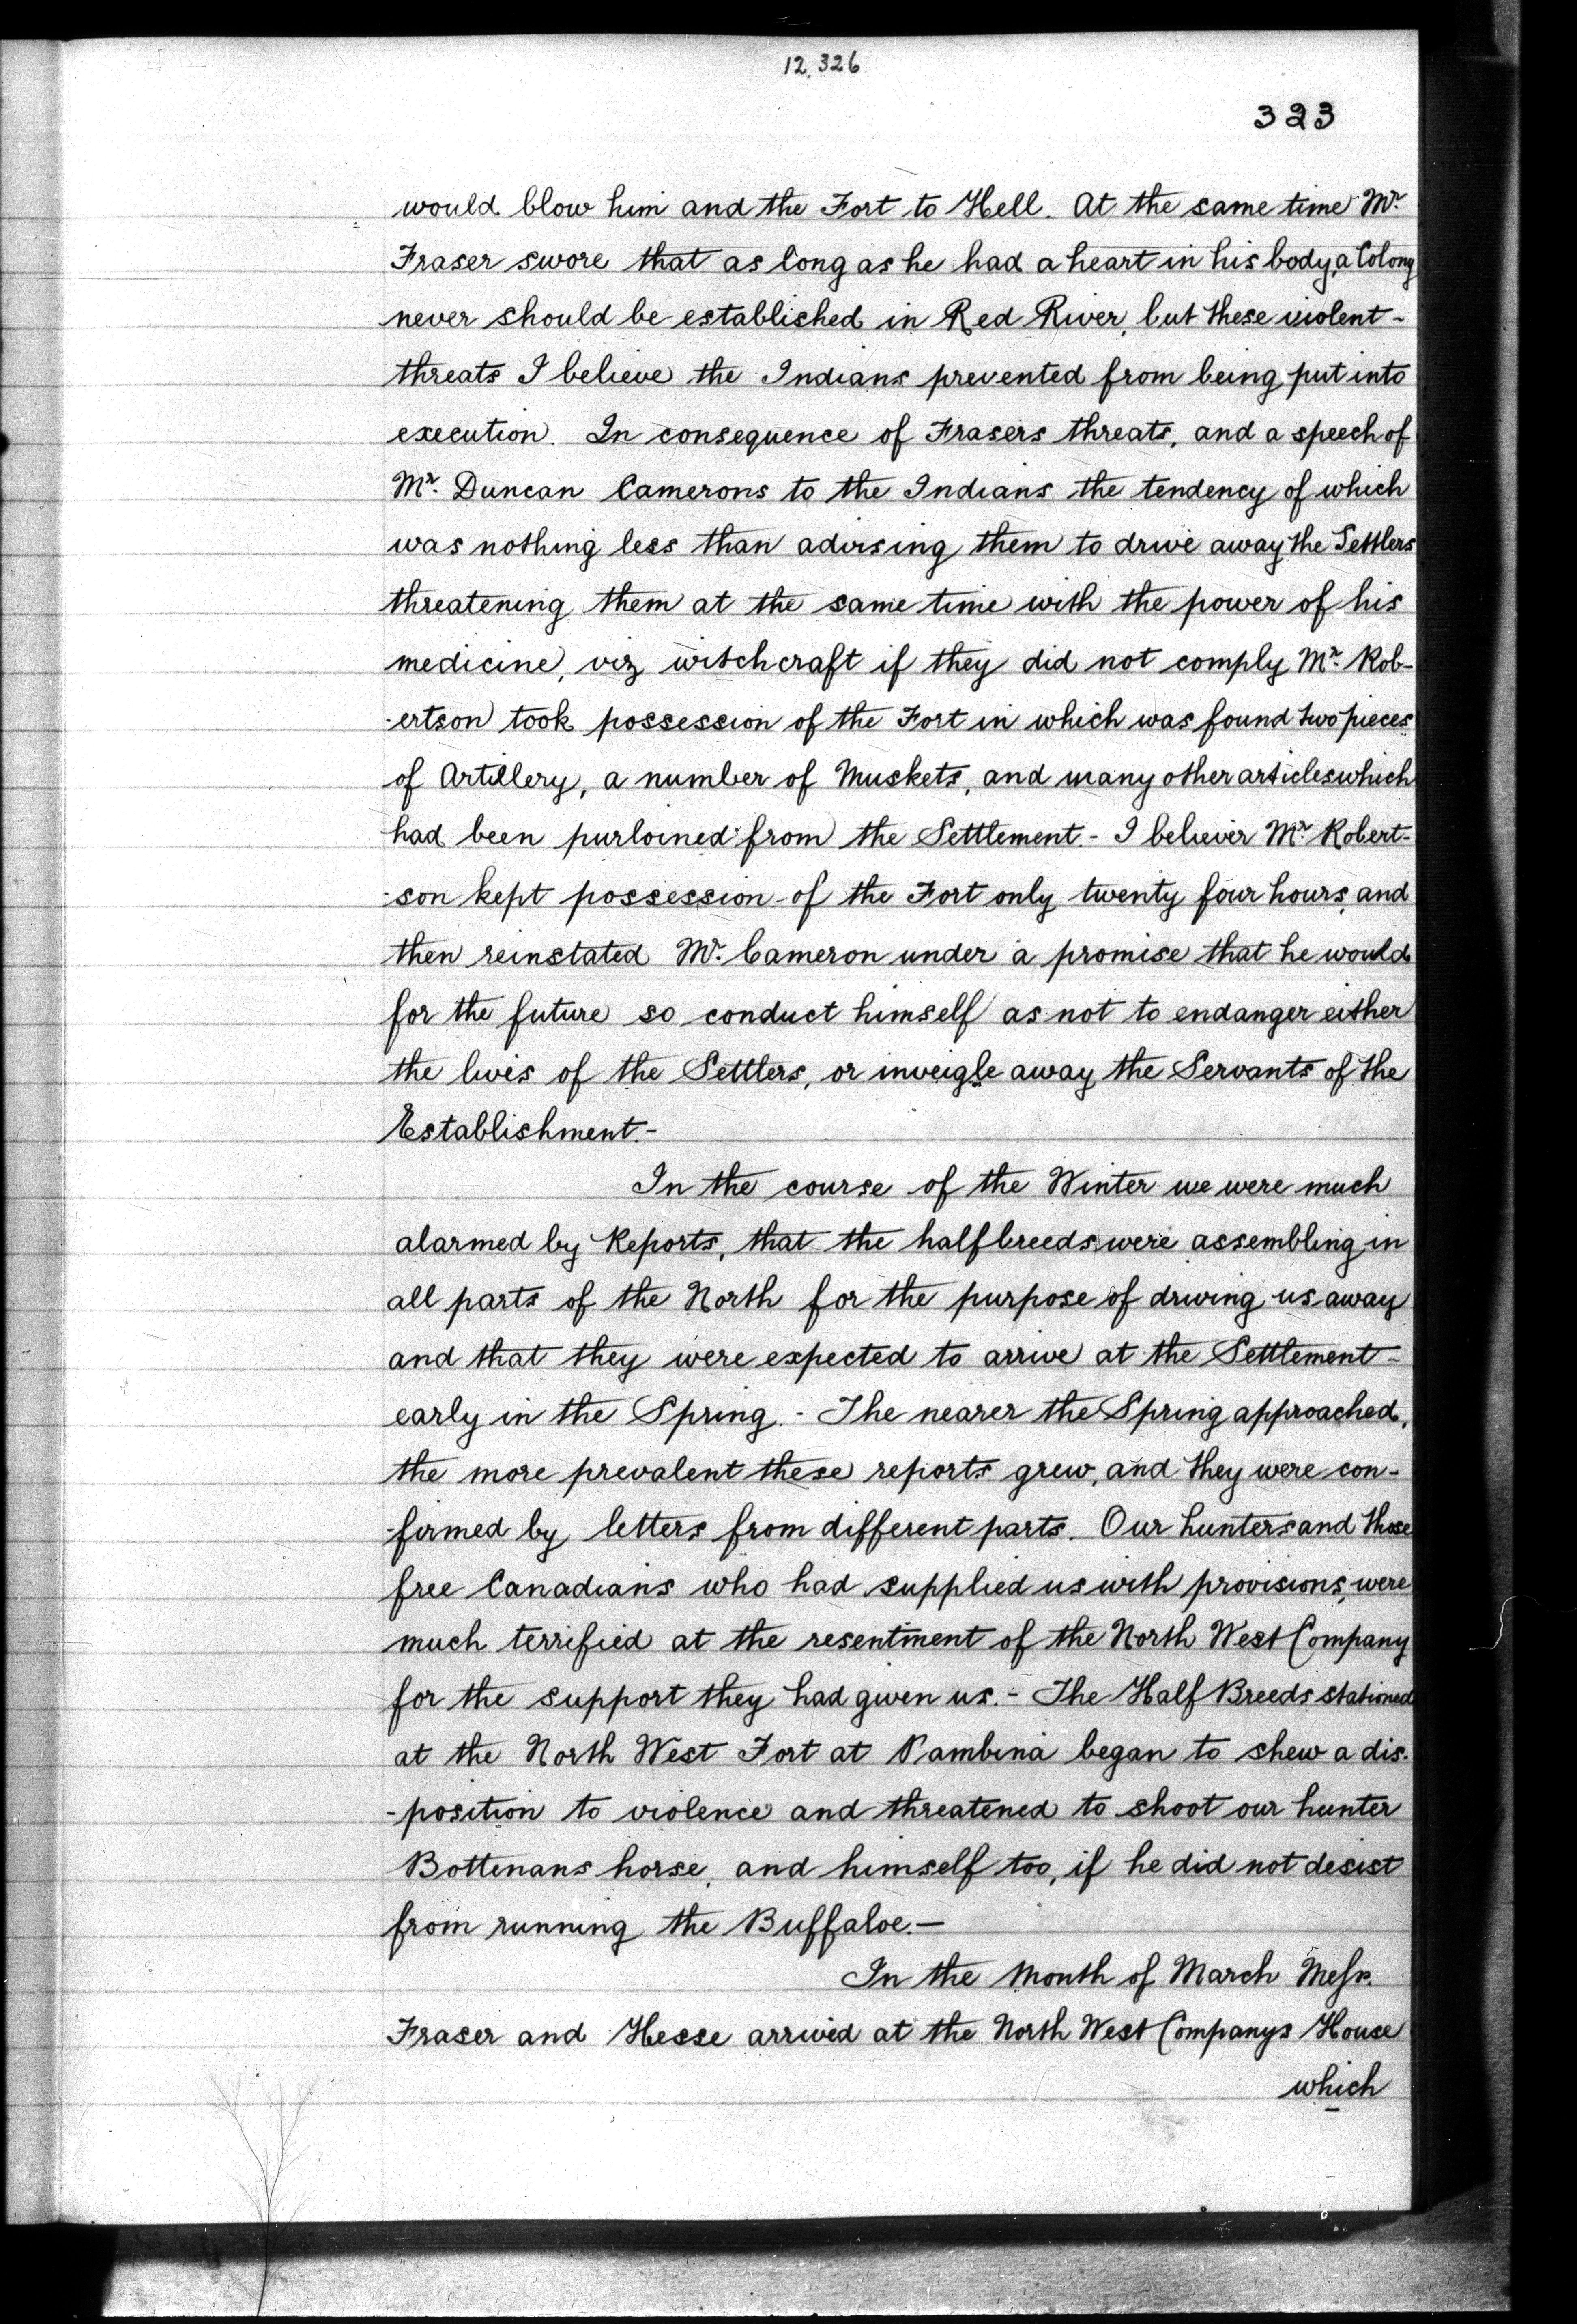 12.326
323
would blow him and the Fort to Hell. At the same time Mr.
Fraser swore that as long as he had a heart in his body, a Colony
never should be established in Red River, but these violent-
threats I believe the Indians prevented from being put into
execution. In consequence of Frasers threats, and a speech of
Mr. Duncan Camerons to the Indians the tendency of which
was nothing less than advising them to drive away the Settlers
threatening them at the same time with the power of his
medicine, viz witchcraft if they did not comply Mr. Rob-
-ertson took possession of the Fort in which was found two pieces
of Artillery, a number of Muskets, and many other articles which
had been purloined from the Settlement.- I believe Mr. Robert-
-son kept possession of the Fort only twenty four hours, and
then reinstated Mr. Cameron under a promise that he would
for the future so conduct himself as not to endanger either
the lives of the Settlers, or inveigle away the Servants of the
Establishment.-
In the course of the Winter we were much
alarmed by Reports, that the halfbreeds were assembling in
all parts of the North for the purpose of driving us away
and that they were expected to arrive at the Settlement-
early in the Spring.- The nearer the Spring approached,
the more prevalent these reports grew, and they were con-
-firmed by letters from different parts. Our hunters and those
free Canadians who had supplied us with provisions, were
much terrified at the resentment of the North West Company
for the support they had given us.- The Half Breeds stationed
at the North West Fort at Pambina began to shew a dis-
-position to violence and threatened to shoot our hunter
Bottinans horse, and himself too, if he did not desist
from running the Buffaloe.-
In the Month of March Messr.
Fraser and Hesse arrived at the North West Companys House
which